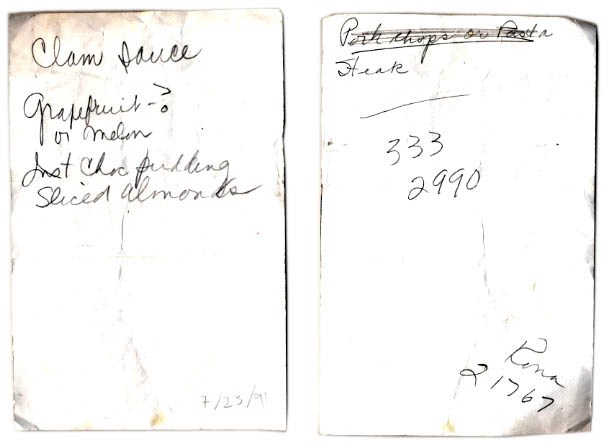 Clam Sauce
Grapefruit - ?
or melon
Inst Choc pudding
Sliced almonds
7/23/91
Pork chops or Pasta
Steak
333
2990
Rona
R 1767